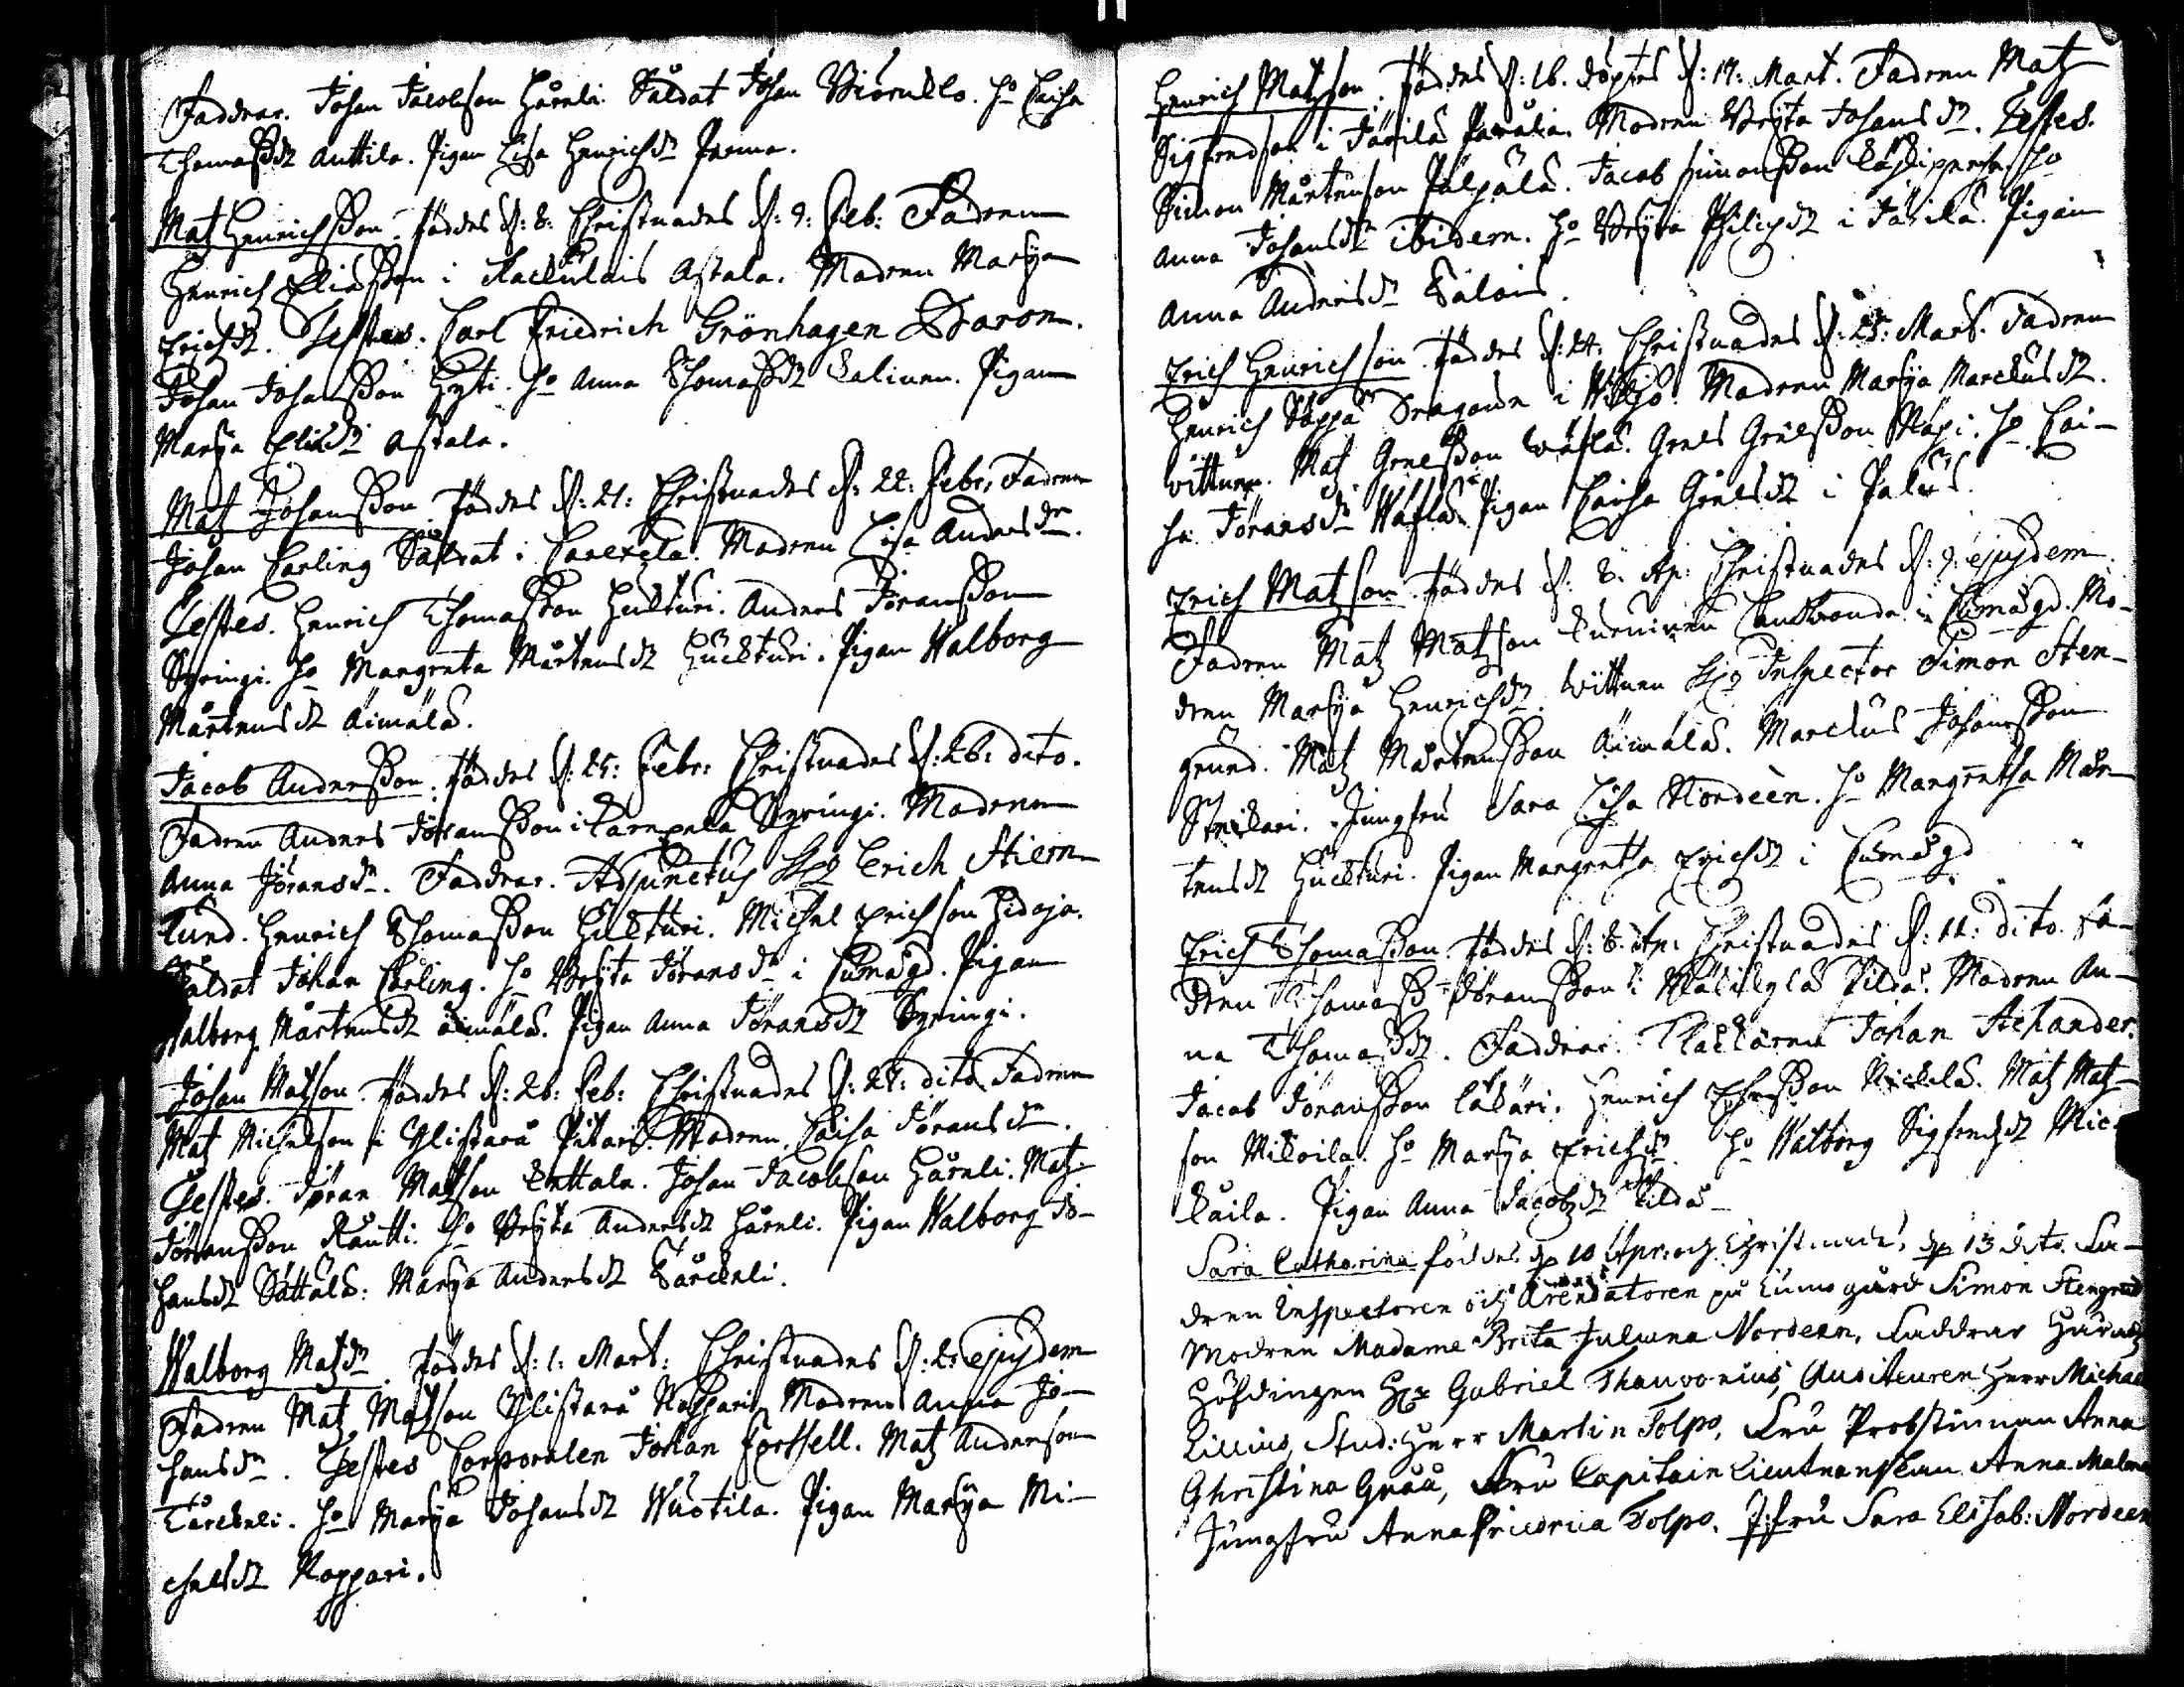 Faddrar. Johan Jacobson Hårnli. Saldat Johan Biörnklo. H:o Caisa
Thomaßdr Anttila. Pigan Lisa Henrichdr Parma.
Matz Henrichßon. föddes d: 8. Christnades d: 9: Feb: Fadren
Henrich Eliæßon i Kackulais Astala. Modren Marija
Erichdr. Testes. Carl Friedrich Grönhagen Baron.
Johan Johanßon Hyti. H:o Anna Thomaßdr Salinen. Pigan
Marija Eliædr Astala.
Matz Johanßon föddes d: 21: Christnades d: 22: Febr. Fadren
Johan Carling Saldat i Modren Lisa Andersdr.
Testes. Henrich Thomaßon Huckturi. Anders Jöranßon
Syringi. H:o Margreta Mårtensdr Huckturi. Pigan Walborg
Mårtensdr Äimälä.
Jacob Anderßon. föddes d: 25: Febr: Christnades d: 26: dito.
Fadren Anders Jöranßon i Syringi. Modren
Anna Jöransdr. Faddrar. Adjunctus Erich Stiern-
lund. Henrich Thomaßon Huckturi. Michel Erichson Hidoja.
Saldat Johan Carling. H:o Brijta Jöransdr i Cumogd. Pigan
Walborg Mårtensdr Äimälä. Pigan Anna Jöransdr Syringi.
Johan Matzson. föddes d: 26: Feb: Christnades d: 27: dito. Fadren
Matz Michelson i Ylistarå Pitari. Modren Caisa Jöransdr.
Testes. Jöran Matzson Enttala. Johan Jacobson Hårnli. Matz
Jöranßon Kautti. H:o Brijta Andersdr Hårnli. Pigan Walborg Jo-
hansdr Sättälä. Marija Andersdr Tårckeli.
Walborg Matzdr. föddes d: 1: Mart: Christnades d: 2: ejusdem
Fadren Matz Matzson Ylistarå Noppari Modren Anna Jo-
hansdr. Testes Corporalen Johan Forssell. Matz Anderson
Tårckeli. H:o Marija Johansdr Wuotila. Pigan Marija Mi-
chelsdr Noppari.
Henrich Matzson. föddes d: 16. döptes d: 17: Mart. Fadren Matz
Sigfredson i Järilä Modren Brijta Johansdr. Testes.
Simon Mårtenson Pälpälä. Jacob Simonßon H:o
Anna Johansdr ibidem. H:o Brijta Philipdr i Järilä. Pigan
Anna Andersdr
Erich Henrichson föddes d: 24. Christnades d: 25: Mart. Fadren
Henrich Dragoun i Modren Marija Marckusdr.
Wittnen. Matz Grelsßon Grels Grelsßon H:o Cai-
sa Jöransdr Pigan Caisa Grelsdr i
Erich Matzson föddes d: 8. Ap: Christnades d: 9: ejusdem
Fadren Matz Matzson Landbonde i Cumogd. Mo-
dren Marija Henrichdr. Wittnen Inspector Simon Sten-
grund. Matz Mårtenßon Äimälä. Marckus Johanßon
Jungfru Sara Lisa Nordeen. H:o Margretha Mår-
tensdr Huckturi. Pigan Margretha Erichdr i Cumogd
Erich Thomaßon. föddes d: 8. Ap: Christnades d: 11: dito. Fa-
dren Thomaß Jöranßon i Pildä. Modren An-
na Thomaßdr. Faddrar. Klåckaren Johan Achander.
Jacob Jöranßon Henrich Matz Matz-
son Mickoila. H:o Marija Erichdr. H:o Walborg Sigfredzdr Mic-
koila. Pigan Anna Jacobzdr Pildä
Sara Catharina föddes dn 10 Apr: och Christnades dn 13 dito. Fa-
dren Inspectoren och Arendatoren på Cumo gård Simon Stengrund
Modren Madame Brita Juliana Nordeen, Faddrar Härads-
höfdingen Hr Gabriel Thauvonius, Auditeuren Herr Michael
Lillius, Stud: Herr Martin Tolpo, Fru Probstinnan Anna
Christina Gråå, Fru Capitain Lieutnanskan Anna Malm
Jungfru Anna Fridrica Tolpo. J:fru Sara Elisab: Nordeen